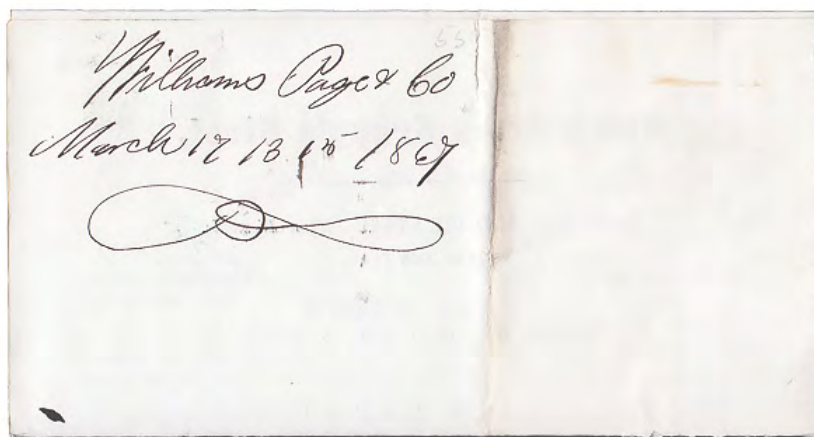 Williams Page & Co
March 12 13 15 1867